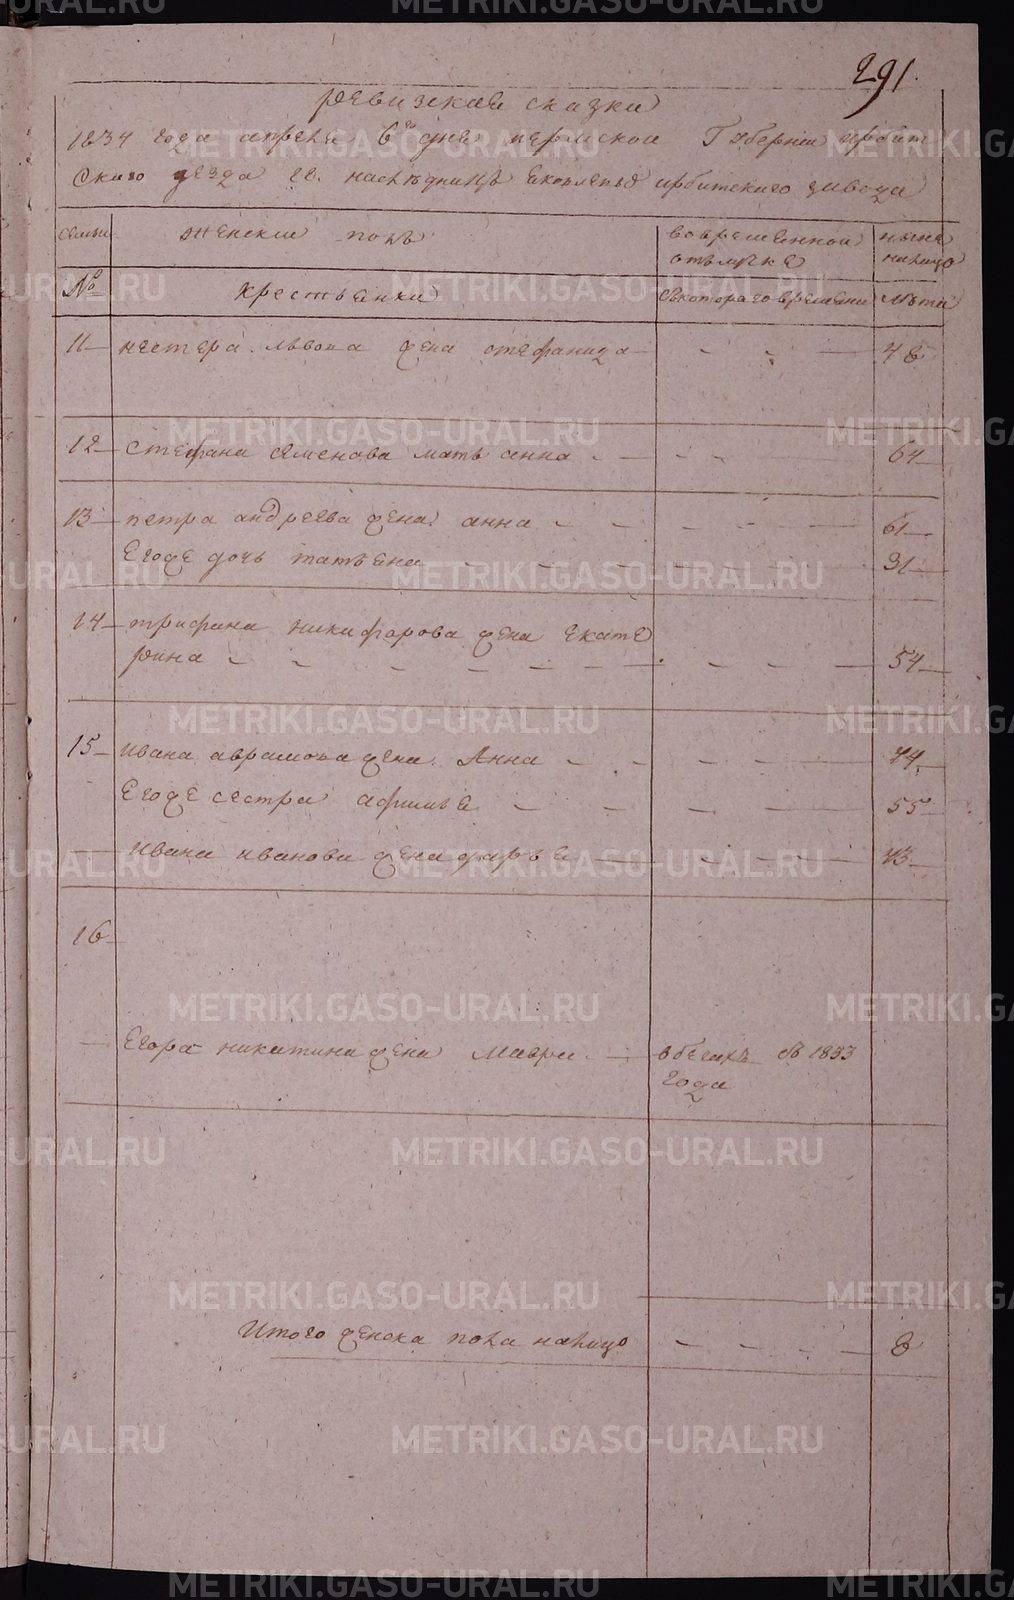 291.
ревизские сказки
1834 года апреля 6го дня пермской Губернии ирбит
ского уезда гг. наследницъ яковлевыхъ ирбитского завода
семьи
женский полъ
во временной отлучке
ныне налицо
№
крестьянки
с котораго времени
Лета
11 нестера львова жена стефанида 48
12 стефана семенова мать анна 64
13 петра андреева жена анна 61
Егоже дочь татьяна 31
14 трифана никифарова жена екате
рина 54
15 ивана аврамова жена Анна 74
Егоже сестра афимья 55
ивана иванова жена дарья 43
16
Егора никитина жена мавра в бегахъ съ 1833
года
Итого женска пола налицо 8
METRIKI.GASO-URAL.RU